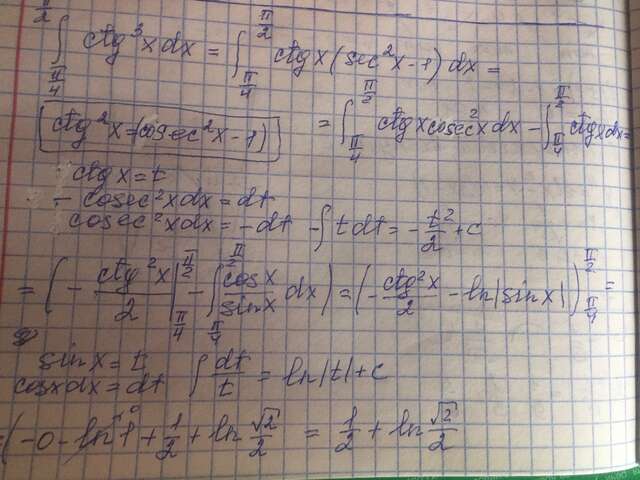 ∫_{π/4}^{π/2} ctg³x dx = ∫_{π/4}^{π/2} ctgx (sec²x - 1) dx =
[ctg²x = cosec²x - 1] = ∫_{π/4}^{π/2} ctgx cosec²x dx - ∫_{π/4}^{π/2} ctgx dx =
ctgx = t
- cosec²x dx = dt
cosec²x dx = -dt - ∫ t dt = - t²/2 + c
= (- ctg²x/2 |_{π/4}^{π/2} - ∫_{π/4}^{π/2} cosx/sinx dx) = (- ctg²x/2 - ln|sinx|)_{π/4}^{π/2} =
sinx = t
cosx dx = dt ∫ dt/t = ln|t| + c
= (-0 - ln 1 + 1/2 + ln √2/2 = 1/2 + ln √2/2